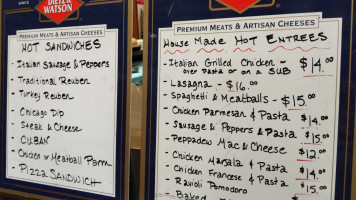 SINCE
DIETZ
& WATSON
PREMIUM MEATS & ARTISAN CHEESES
HOT SANDWICHES
- Italian Sausage & Peppers
- Traditional Reuben
- Turkey Reuben
- Chicago Dip
- Steak & Cheese
- CUBAN
- Chicken or Meatball Parm
- PIZZA SANDWICH
PREMIUM MEATS & ARTISAN CHEESES
House Made Hot Entrees
- Italian Grilled Chicken -
over Pasta or on a SUB $14.00
- Lasagna - $16.00
- Spaghetti & Meatballs - $15.00
- Chicken Parmesan & Pasta $14.00
- Sausage & Peppers & Pasta $15.00
- Peppadew Mac & Cheese $12.00
- Chicken Marsala & Pasta $14.00
- Chicken Francese & Pasta $15.00
- Ravioli Pomodoro
- Baked